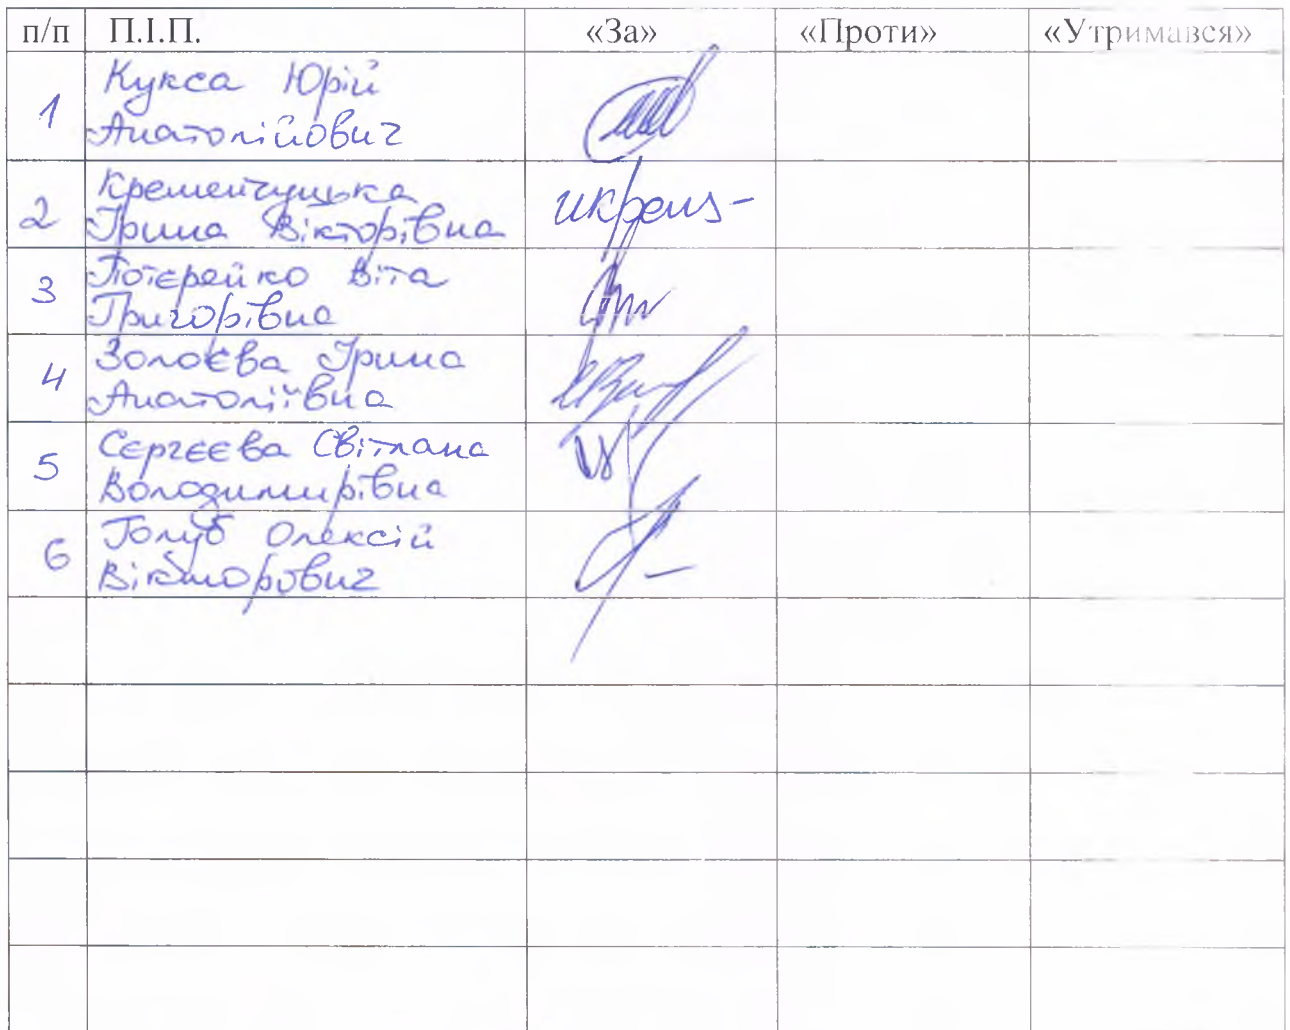 п/п П.І.П. «За» «Проти» «Утримався»
1 Кукса Юрій
Анатолійович
2 Кременчуцька
Ірина Вікторівна
3 Потєрейко Віта
Григорівна
4 Золоєва Ірина
Анатоліївна
5 Сергєєва Світлана
Володимирівна
6 Голуб Олексій
Вікторович